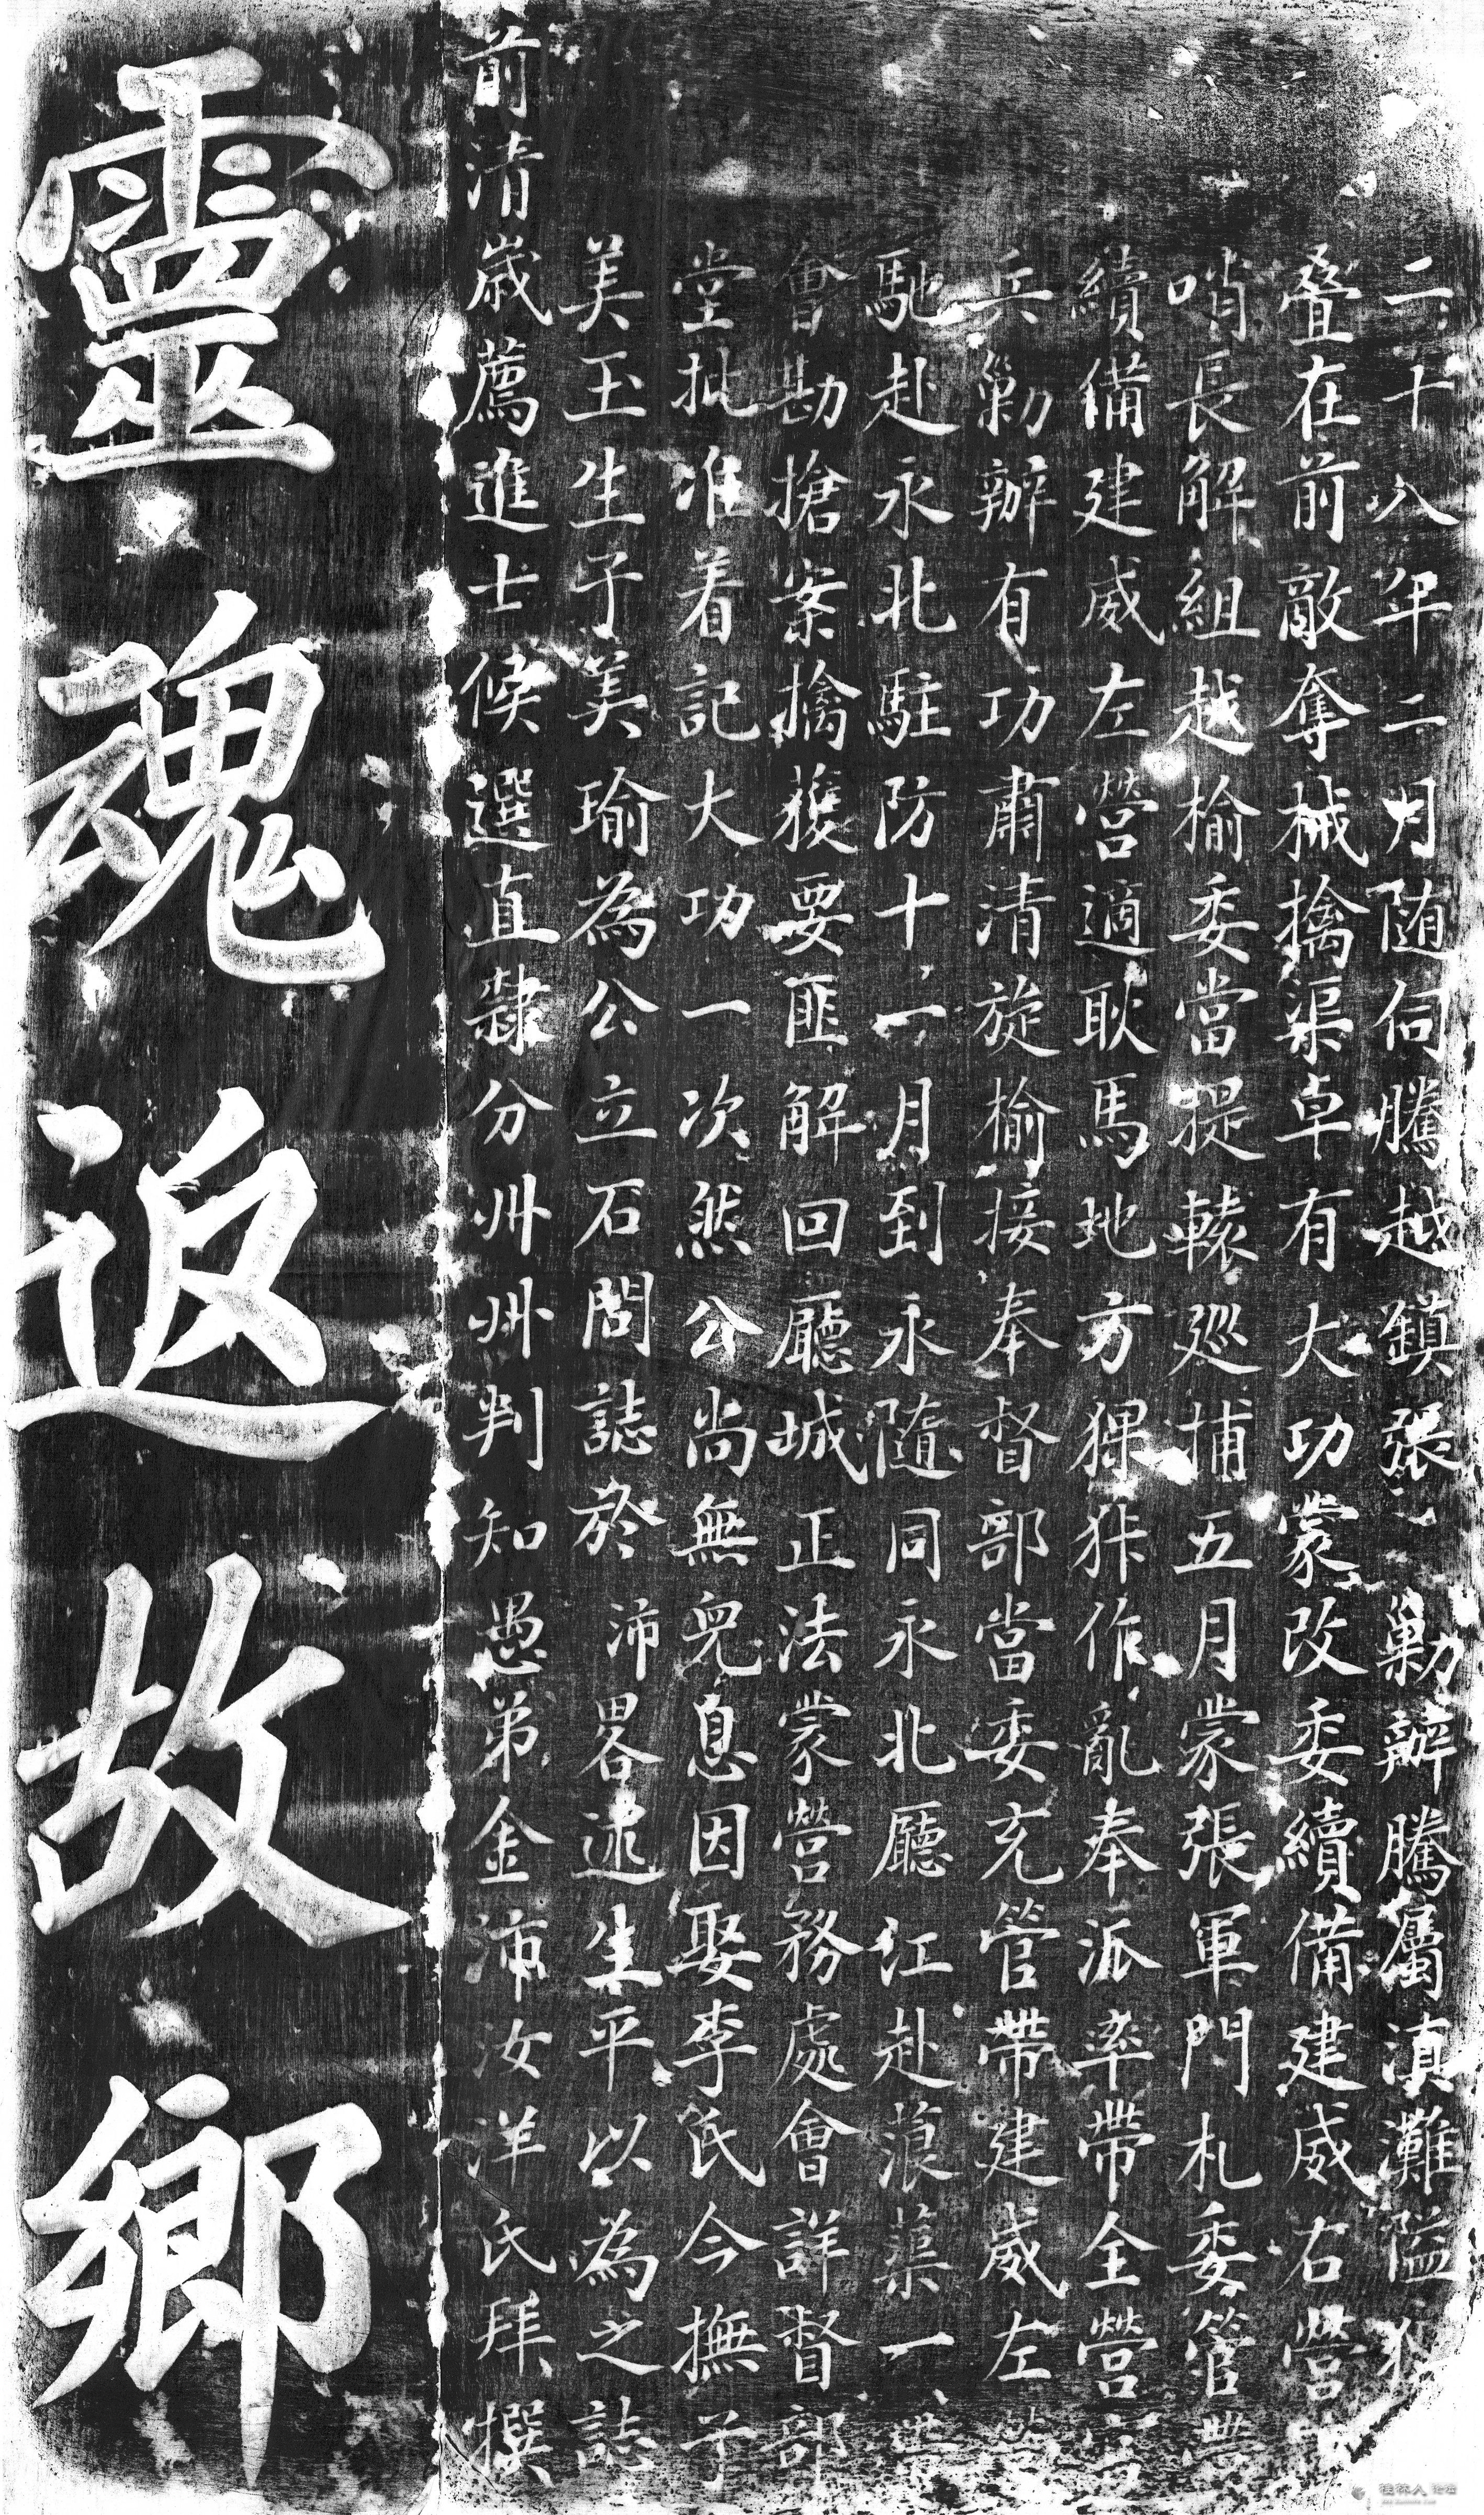 二十八年二月随伺騰越鎮張 勦辦騰屬滇灘隘
叠在前敵奪械擒渠卓有大功蒙改委續備建威右營
哨長解組越榆委當提轅巡捕五月蒙張軍門札委管帶
續備建威左營適耿馬地方猓㹧作亂奉派率帶全營官
兵勦辦有功肅清旋榆接奉督部當委充管帶建威左營
馳赴永北駐防十一月到永隨同永北廳江赴蒗蕖一帶
會勘搶案擒獲要匪解回廳城正法蒙營務處會詳督部
堂批准着記大功一次然公尚無兒息因娶李氏今撫子
美玉生子美瑜為公立石問誌於 沛畧述生平以為之誌
前清歲薦進士候選直隸分州州判知愚弟金沛汝洋氏拜撰
靈魂返故鄉